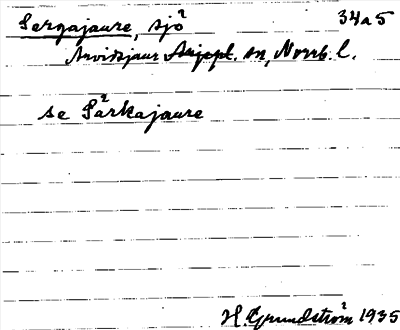 Sergajaure, sjö 34a5
Arvidsjaur Arjepl. sn, Norrb. l.
se Särkajaure
H. Grundström 1935